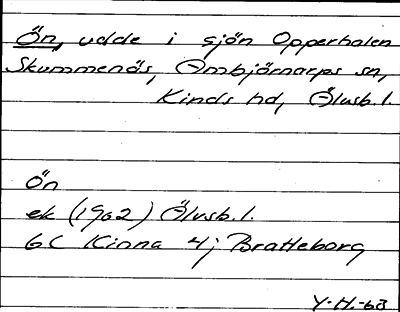 Ön, udde i sjön Opperhalen
Skummenäs, Ambjörnarps sn,
Kinds hd, Älvsb. l.
ön
ek (1962) Älvsb. l.
6C Kinna 4j Bratteborg
Y-H.-63